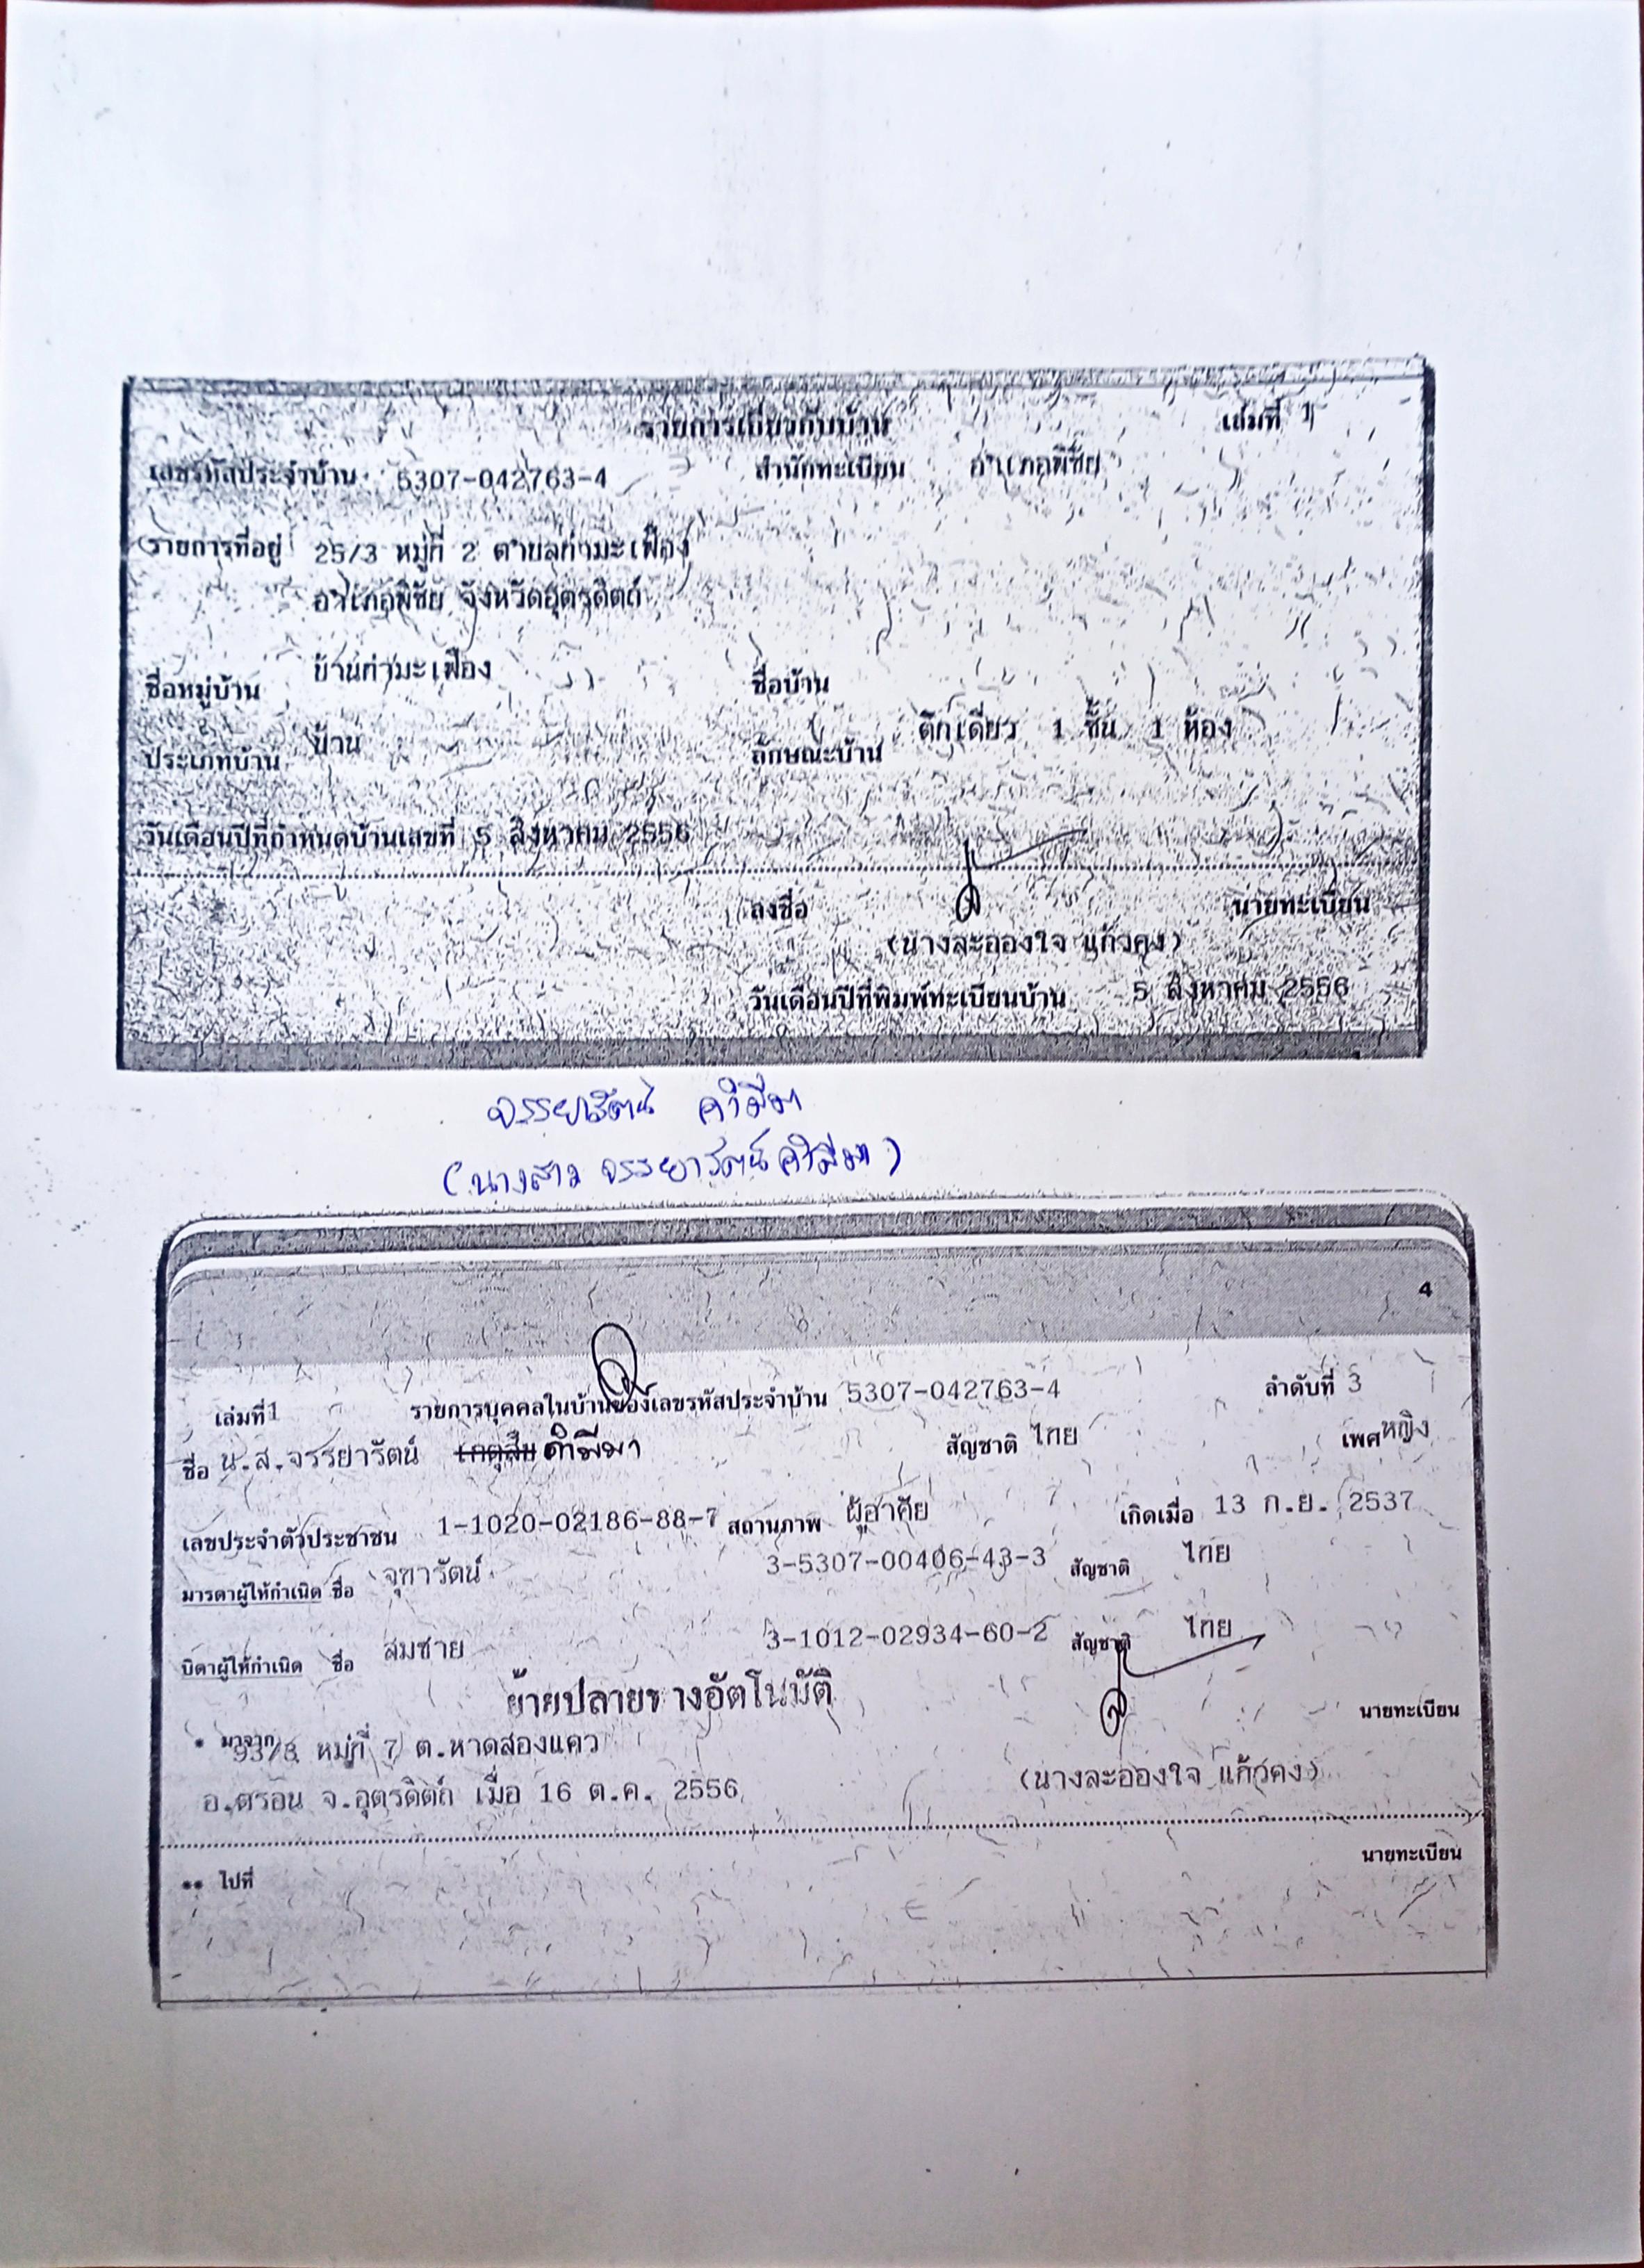 รายการเกี่ยวกับบ้าน เล่มที่ 1
เลขรหัสประจำบ้าน 5307-042763-4 สำนักทะเบียน อำเภอพิชัย
รายการที่อยู่ 25/3 หมู่ที่ 2 ตำบลท่ามะเฟือง
อำเภอพิชัย จังหวัดอุตรดิตถ์
ชื่อหมู่บ้าน บ้านท่ามะเฟือง ชื่อบ้าน
ประเภทบ้าน บ้าน ลักษณะบ้าน ตึกเดี่ยว 1 ชั้น 1 ห้อง
วันเดือนปีที่กำหนดบ้านเลขที่ 5 สิงหาคม 2556
ลงชื่อ นายทะเบียน
(นางละอองใจ แก้วคง)
วันเดือนปีที่พิมพ์ทะเบียนบ้าน 5 สิงหาคม 2556
จรรยารัตน์ คำมีมา
(นางสาว จรรยารัตน์ คำมีมา)
4
เล่มที่ 1 รายการบุคคลในบ้านของเลขรหัสประจำบ้าน 5307-042763-4 ลำดับที่ 3
ชื่อ น.ส.จรรยารัตน์ คำมีมา สัญชาติ ไทย เพศ หญิง
เลขประจำตัวประชาชน 1-1020-02186-88-7 สถานภาพ ผู้อาศัย เกิดเมื่อ 13 ก.ย. 2537
มารดาผู้ให้กำเนิด ชื่อ จุฑารัตน์ 3-5307-00406-43-3 สัญชาติ ไทย
บิดาผู้ให้กำเนิด ชื่อ สมชาย 3-1012-02934-60-2 สัญชาติ ไทย
ย้ายปลายทางอัตโนมัติ
นายทะเบียน
* มาจาก 93/3 หมู่ที่ 7 ต.หาดสองแคว
อ.ตรอน จ.อุตรดิตถ์ เมื่อ 16 ต.ค. 2556 (นางละอองใจ แก้วคง)
นายทะเบียน
** ไปที่